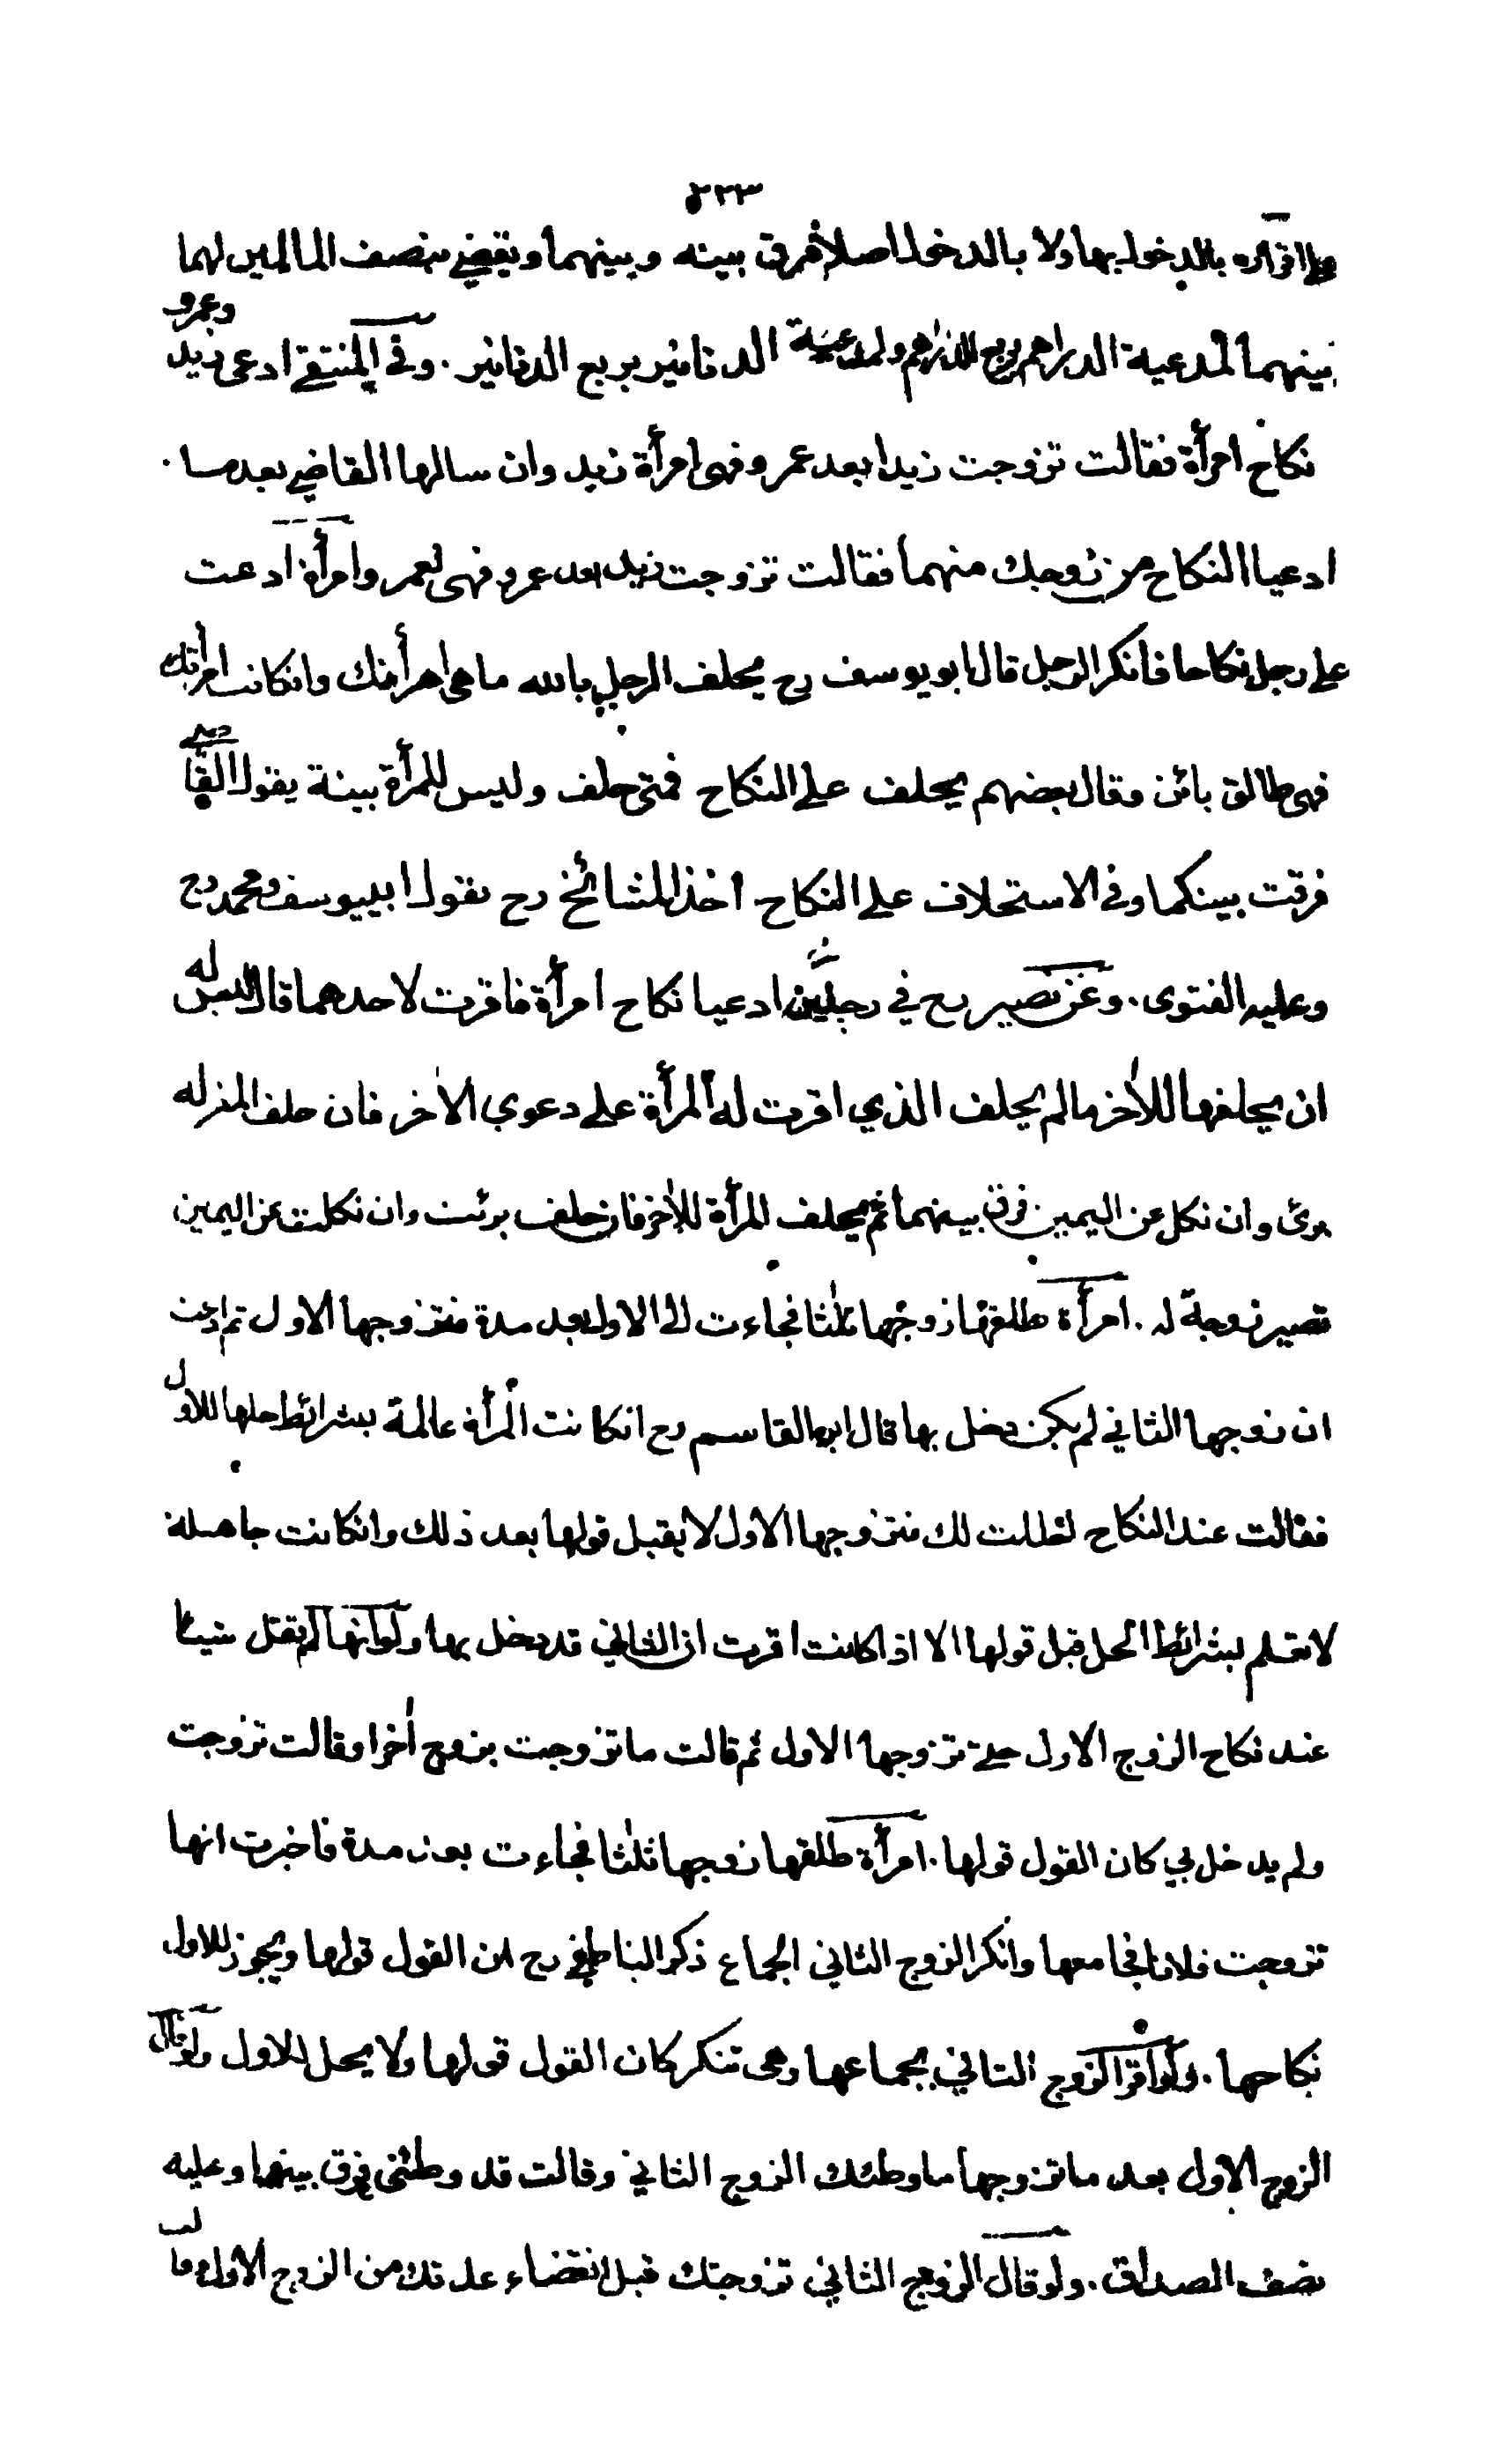 ٥٢٣٣
على اقراره بالدخول بها ولا بالدخول اصلا فرق بينه وبينهما ويقضي بنصف المالين لهما
بينهما لمدعية الدراهم بربع الدراهم ولمدعية الدنانير بربع الدنانير . وفي المنتقى ادعى زيد وعمرو
نكاح امرأة فقالت تزوجت زيدا بعد عمرو فهى امرأة زيد وان سالها القاضي بعد ما
ادعيا النكاح من زوجك منهما فقالت تزوجت زيدا بعد عمرو فهى لعمر وامرأة ادعت
على رجل نكاحا فانكر الرجل قال ابو يوسف رح يحلف الرجل بالله ما هي امرأتك وانكانت امرأتك
فهى طالق بائن وقال بعضهم يحلف على النكاح فمتى حلف وليس للمرأة بينة يقول القاضي
فرقت بينكما وفي الاستحلاف على النكاح اخذ المشائخ رح بقول ابييوسف ومحمد رح
وعليه الفتوى . وعن نصير رح في رجلين ادعيا نكاح امرأة فاقرت لاحدهما قال ليس له
ان يحلفها للاٰخر مالم يحلف الذي اقرت له المرأة على دعوي الاٰخر فان حلف المقر له
برئ وان نكل عن اليمين فرق بينهما ثم يحلف المرأة للاٰخر فان حلف برئت وان نكلت عن اليمين
تصير زوجة له . امرأة طلقها زوجها ثلٰثا فجاءت الى الاول بعد مدة فتزوجها الاول ثم ادعت
ان زوجها الثاني لم يكن دخل بها قال ابو القاسم رح انكانت المرأة عالمة بشرائط حلها للاول
فقالت عند النكاح لك فتزوجها الاول لا يقبل قولها بعد ذلك وانكانت جاهلة
لا تعلم بشرائط الحل قبل قولها الا اذا كانت اقرت ان الثاني قد دخل بها ولو انها لم تقل شيئا
عند نكاح الزوج الاول حتى تزوجها الاول ثم قالت ما تزوجت بزوج اٰخر او قالت تزوجت
ولم يدخل بي كان القول قولها . امرأة طلقها زوجها ثلٰثا فجاءت بعد مدة فاخبرت انها
تزوجت فلانا فجامعها وانكر الزوج الثاني الجماع ذكر الناطفي رح ان القول قولها ويجوز للاول
نكاحها . ولو اقر الزوج الثاني بجماعها وهى تنكر كان القول قولها ولا يحل للاول ولو قال
الزوج الاول بعد ما تزوجها ما وطئك الزوج الثاني وقالت قد وطئنى فرق بينهما وعليه
نصف الصداق . ولو قال الزوج الثاني تزوجتك قبل انقضاء عدتك من الزوج الاول وقالت